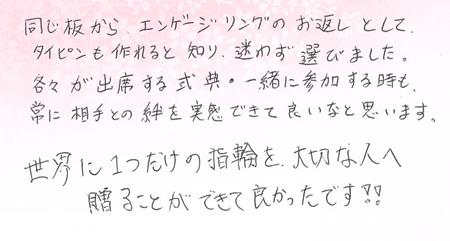 同じ板から、エンゲージリングのお返しとして、
タイピンも作れると知り、迷わず選びました。
各々が出席する式典・一緒に参加する時も、
常に相手との絆を実感できて良いなと思います。
世界に1つだけの指輪を、大切な人へ
贈ることができて良かったです!!